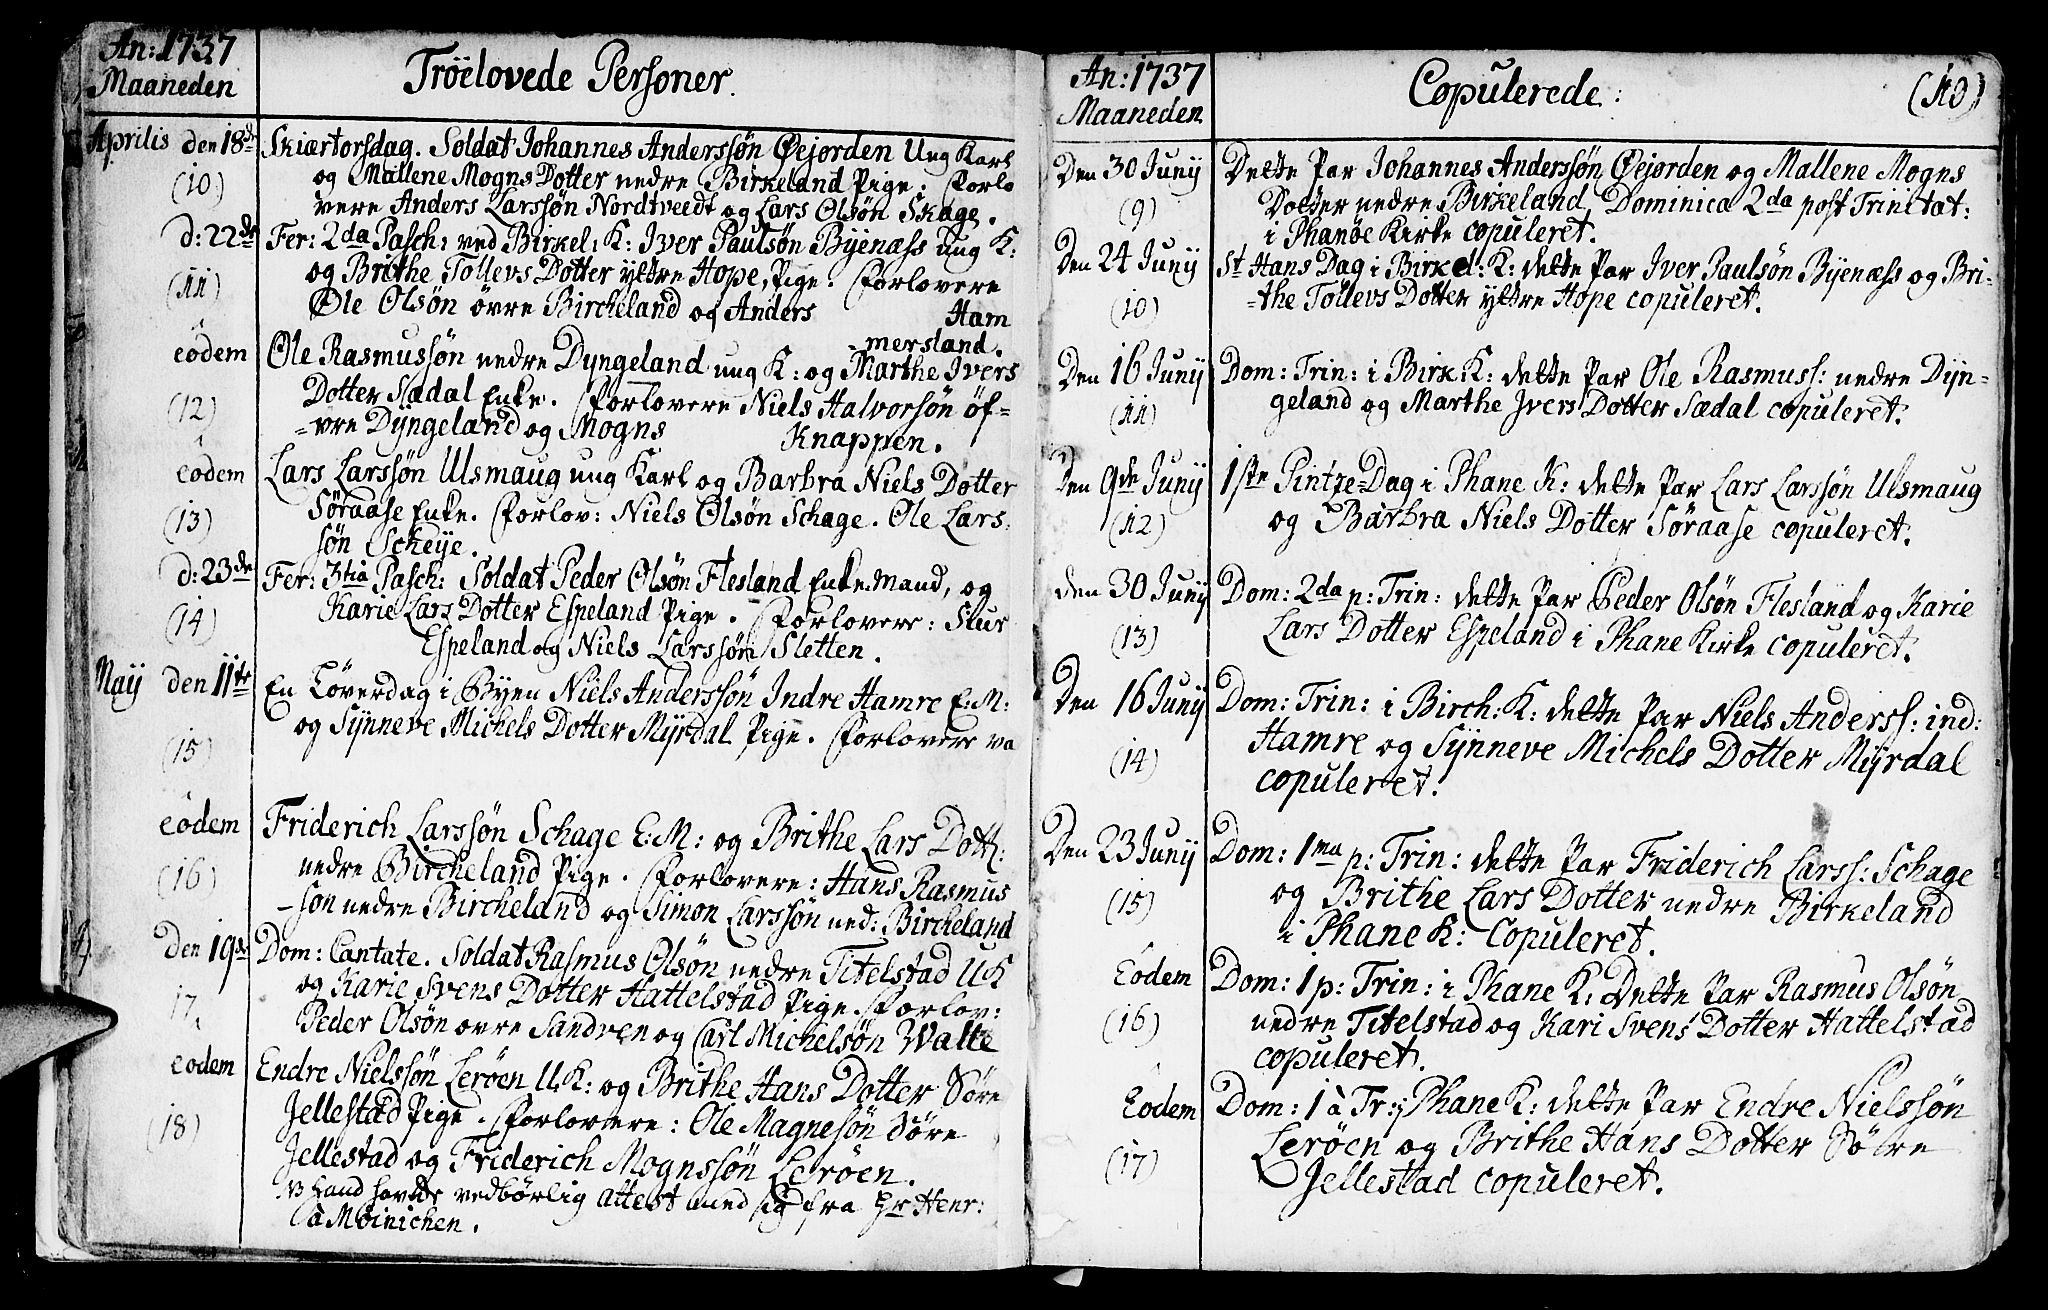 An: 1737
Maaneden
Tröelovede Personer.
Aprilis den 18de Skiærtorsdag. Soldat Johannes Anderssøn Øejorden Ung Karl
(10) og Mallene Mogns Dotter nedre Birkeland Pige. Forlo
vere Anders Larssøn Nordtveedt og Lars Olsøn Skage.
d: 22de Fer: 2da Pasch: ved Birkel: K: Iver Paulsøn Byenæss ung K:
(11) og Brithe Tollevs Dotter yttre Hope, Pige. Forlovere
Ole Olsøn övre Bircheland og Anders Ham
mersland.
eodem Ole Rasmussøn nedre Dyngeland ung K: og Marthe Ivers
(12) Dotter Sædal Enke. Forlovere Niels Halvorsøn öf=
=vre Dyngeland og Mogns Knappen.
eodem Lars Larssøn Ulsmaug ung Karl og Barbra Niels Dotter
(13) Søraase Enke. Forlov: Niels Olsøn Schage. Ole Lars
søn Scheye.
d: 23de Fer: 3tia Pasch: Soldat Peder Olsøn Flesland Enke Mand, og
(14) Karie Lars Dotter Espeland Pige. Forlovere: Siur
Espeland og Niels Larssøn Sletten.
Maij den 11te En Löverdag i Byen Niels Anderssøn Indre Hamre E: M:
(15) og Synneve Michels Dotter Myrdal Pige. Forlovere va
eodem Friderich Larssøn Schage E: M: og Brithe Lars Dott:
(16) nedre Bircheland Pige. Forlovere: Hans Rasmus
-søn nedre Bircheland og Simon Larssøn ned: Bircheland
Den 19de Dom: Cantate. Soldat Rasmus Olsøn nedre Titelstad U K
17. og Karie Svens Dotter Hattelstad Pige. Forlov:
Peder Olsøn ovre Sandven og Carl Michelsøn Walle
eodem Endre Nielssøn Lerøen U. K: og Brithe Hans Dotter Söre
(18) Jellestad Pige. Forlovere: Ole Magnesøn Söre
Jellestad og Friderich Mognssøn Lerøen.
NB hand havde vedbörlig attest med sig fra Hr Henr:
à Möinichen.
An: 1737
Maaneden
Copulerede:
(10)
Den 30 Junij Dette Par Johannes Anderssøn Øejorden og Mallene Mogns
(9) Dotter nedre Birkeland Dominica 2da post Trinitat:
i Phanöe Kirke copuleret.
Den 24 Junij St Hans Dag i Birkel: K: dette Par Iver Paulsøn Byenæss og Bri-
(10) -the Tollevs Dotter yttre Hope copuleret.
Den 16 Junij Dom: Trin: i Birk: K: dette Par Ole Rasmuss: nedre Dyn-
(11) geland og Marthe Ivers Dotter Sædal copuleret.
Den 9de Junij 1ste Pintze-Dag i Phane K: dette Par Lars Larssøn Ulsmaug
(12) og Barbra Niels Dotter Søraase copuleret.
den 30 Junij Dom: 2da p: Trin: dette Par Peder Olsøn Flesland og Karie
(13) Lars Dotter Espeland i Phane Kirke copuleret.
Den 16 Junij Dom: Trin: i Birch: K: dette Par Niels Anderss: ind:
(14) Hamre og Synneve Michels Dotter Myrdal
copuleret.
Den 23 Junij Dom: 1ma p: Trin: dette Par Friderich Larss: Schage
(15) og Brithe Lars Dotter nedre Birkeland
i Phane K: Copuleret.
Eodem Dom: 1 p: Trin: i Phane K: Dette Par Rasmus Olsøn
(16) nedre Titelstad og Kari Svens Dotter Hattelstad
copuleret.
Eodem Dom: 1 à Tr: i Phane K: dette Par Endre Nielssøn
(17) Lerøen og Brithe Hans Dotter Söere
Jellestad copuleret.